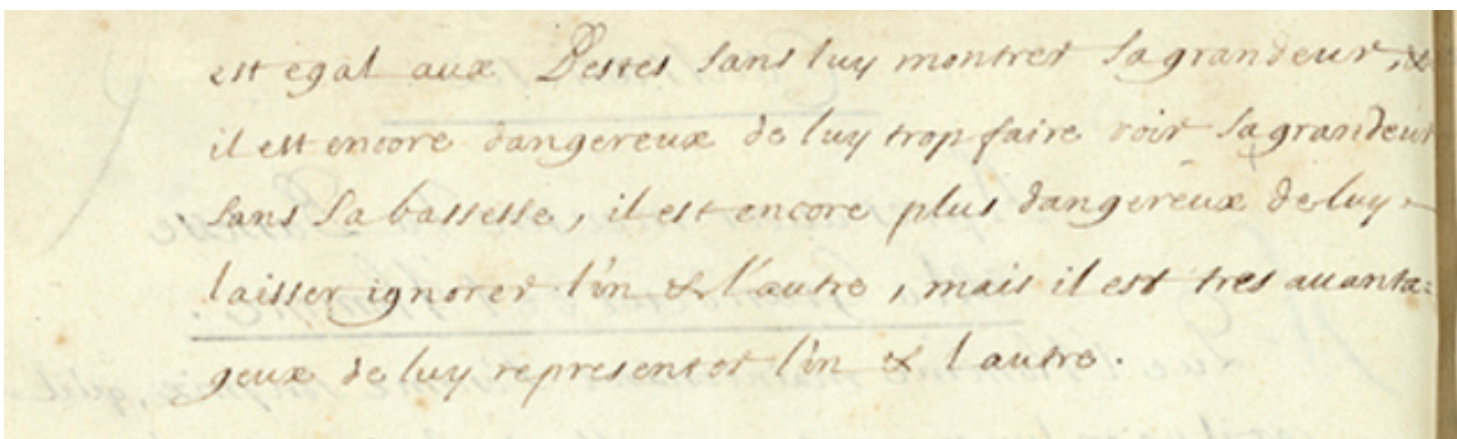 est egal aux Bestes sans luy montrer sa grandeur, &
il est encore dangereux de luy trop faire voir sa grandeur
sans sa bassesse, il est encore plus dangereux de luy
laisser ignorer l'un & l'autre, mais il est tres auanta=
geux de luy representer l'un & l'autre.